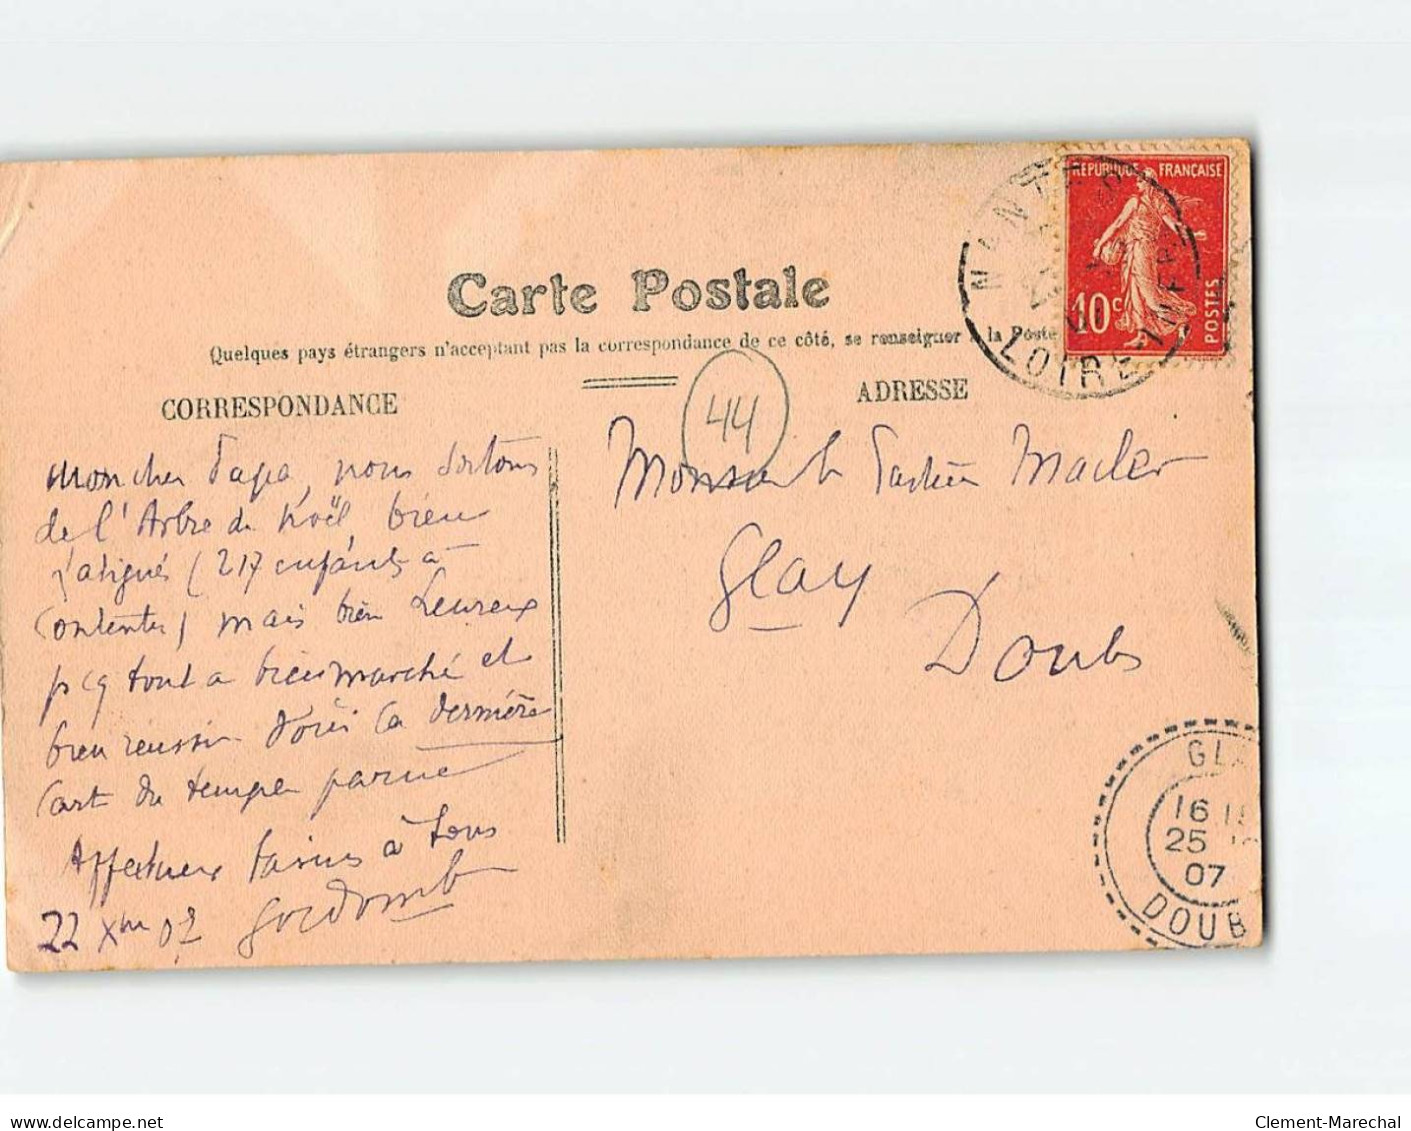 RÉPUBLIQUE FRANÇAISE
10c
POSTES
NANTES
LOIRE-INFRE
Carte Postale
Quelques pays étrangers n'acceptant pas la correspondance de ce côté, se renseigner à la Poste
CORRESPONDANCE
ADRESSE
44
Mon cher Papa, nous sortons
de l'Arbre de Noël bien
fatigués (217 enfants à
contenter) mais bien heureux
pcq tout a bien marché et
bien réussi. Voici la dernière
cart du temple parue
Affectueux baisers à tous
22 Xbre 07
Monsieur le Pasteur Mader
Glay
Doubs
GLA
16
25
07
DOUB
Clement-Marechal
www.delcampe.net